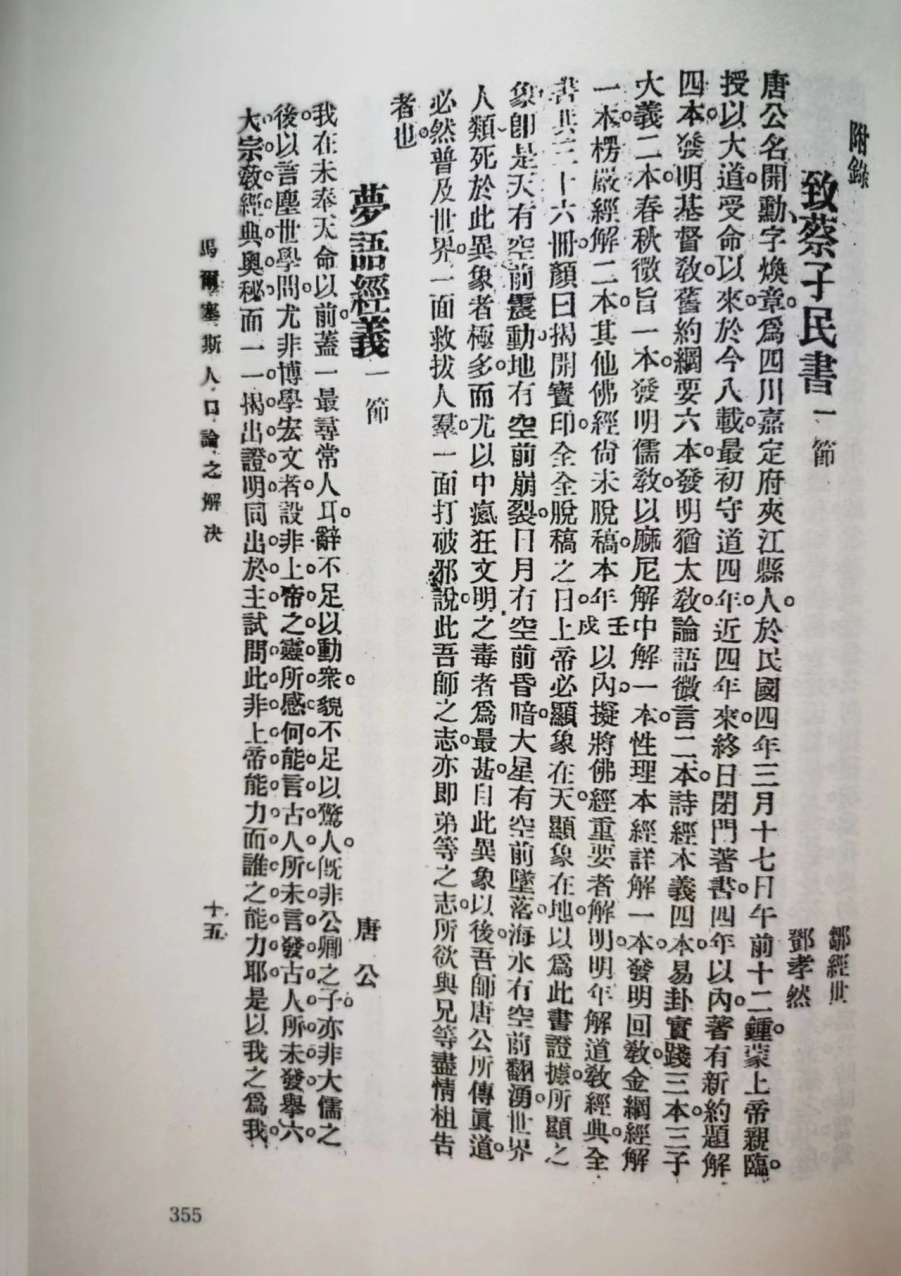 附錄
致蔡子民書一節
鄒經世
鄧孝然
唐公名開勳字煥章。爲四川嘉定府夾江縣人。於民國四年三月十七日午前十二鍾。蒙上帝親臨。
授以大道。受命以來於今八載。最初守道四年。近四年來。終日閉門著書。四年以內。著有新約題解
四本。發明基督敎。舊約綱要六本。發明猶太敎。論語徵言二本。詩經本義四本。易卦實踐三本。三子
大義二本。春秋徵旨一本。發明儒敎。以廡尼解中解一本。性理本經詳解一本。發明回敎。金綱經解
一本。楞嚴經解二本。其他佛經尙未脫稿。本年壬戌以內。擬將佛經重要者解明。明年解道敎經典。全
書共三十六冊。顏曰揭開寶印。全全脫稿之日。上帝必顯象在天。顯象在地。以爲此書證據。所顯之
象。卽是天有空前震動。地有空前崩裂。日月有空前昏暗。大星有空前墜落。海水有空前翻湧。世界
人類死於此異象者極多。而尤以中瘋狂文明之毒者爲最甚。自此異象以後。吾師唐公所傳眞道。
必然普及世界。一面救拔人羣。一面打破邪說。此吾師之志。亦即弟等之志。所欲與兄等盡情相告
者也。
夢語經義一節
唐公
我在未奉天命以前。蓋一最尋常人耳。辭不足以動衆。貌不足以驚人。旣非公卿之子。亦非大儒之
後。以言塵世學問。尤非博學宏文者。設非上帝之靈所感。何能言古人所未言。發古人所未發。舉六
大宗敎經典奧秘。而一一揭出。證明同出於主。試問此非上帝能力而誰之能力耶。是以我之爲我。
馬爾塞斯人口論之解決
十五
355